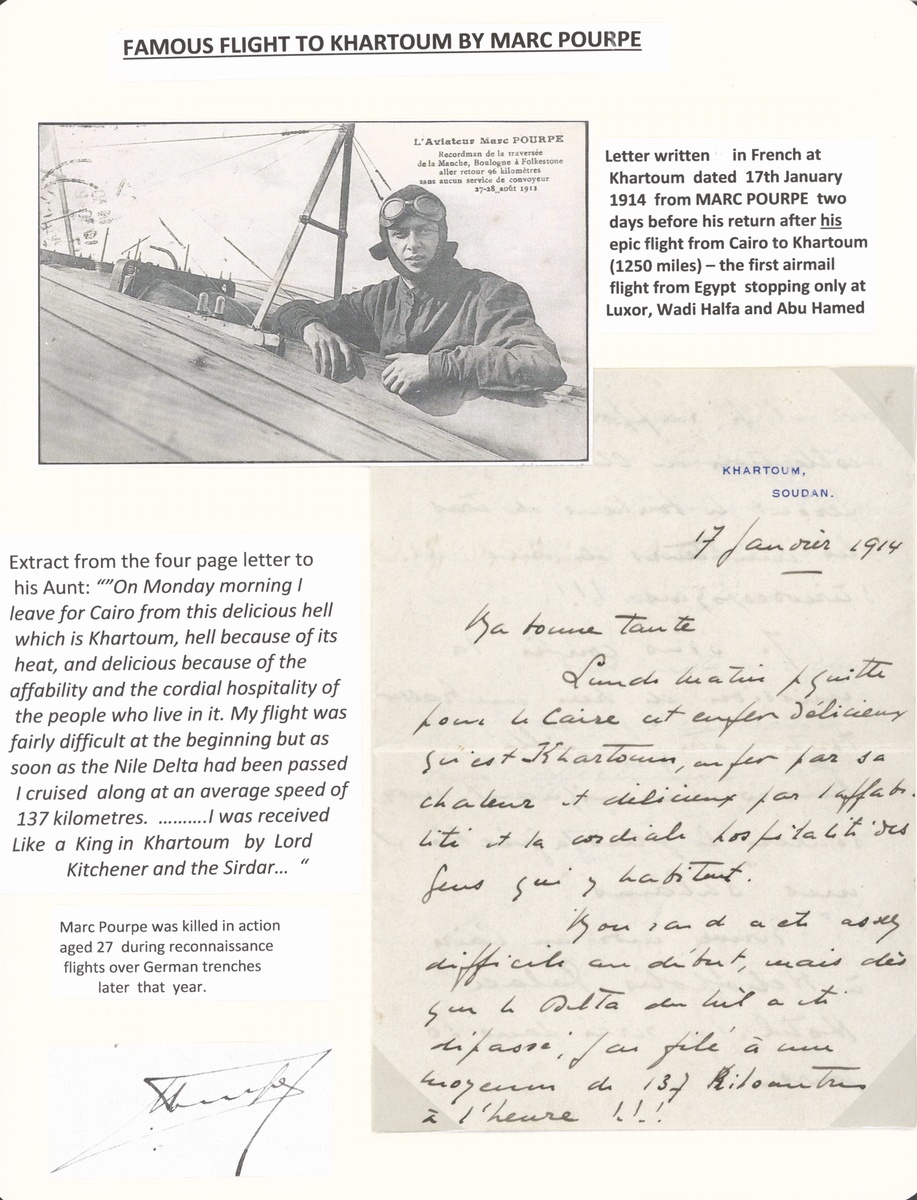 FAMOUS FLIGHT TO KHARTOUM BY MARC POURPE
L'Aviateur Marc POURPE
Recordman de la traversée
de la Manche, Boulogne à Folkestone
aller retour 96 kilomètres
sans aucun service de convoyeur
27-28 août 1912
Letter written in French at
Khartoum dated 17th January
1914 from MARC POURPE two
days before his return after his
epic flight from Cairo to Khartoum
(1250 miles) – the first airmail
flight from Egypt stopping only at
Luxor, Wadi Halfa and Abu Hamed
KHARTOUM,
SOUDAN.
17 Janvier 1914
Ma bonne tante
Lundi matin je quitte
pour le Caire cet enfer délicieux
qu'est Khartoum, enfer par sa
chaleur et délicieux par l'affabi-
lité et la cordiale hospitalité des
gens qui y habitent.
Mon raid a été assez
difficile au début, mais dès
que le Delta du Nil a été
dépassé, j'ai filé à une
moyenne de 137 Kilomètres
à l'heure !!!
Extract from the four page letter to
his Aunt: “”On Monday morning I
leave for Cairo from this delicious hell
which is Khartoum, hell because of its
heat, and delicious because of the
affability and the cordial hospitality of
the people who live in it. My flight was
fairly difficult at the beginning but as
soon as the Nile Delta had been passed
I cruised along at an average speed of
137 kilometres. ……….I was received
Like a King in Khartoum by Lord
Kitchener and the Sirdar… “
Marc Pourpe was killed in action
aged 27 during reconnaissance
flights over German trenches
later that year.